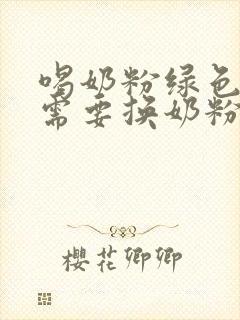 喝奶粉绿色
需要换奶粉
樱花卿卿